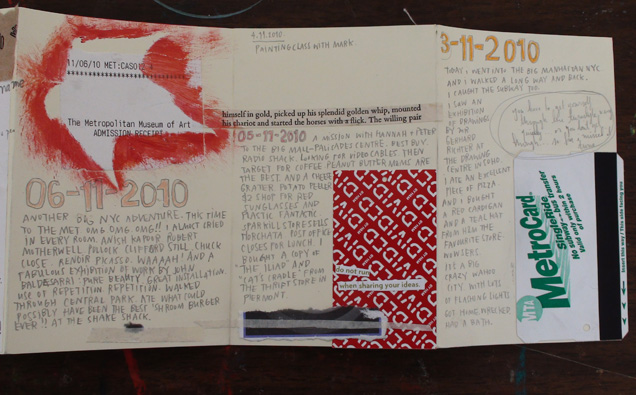 11/06/10 MET:CAS01
The Metropolitan Museum of Art
ADMISSION RECEIPT
06-11-2010
ANOTHER BIG NYC ADVENTURE. THIS TIME
TO THE MET OMG OMG OMG!! I ALMOST CRIED
IN EVERY ROOM. ANISH KAPOOR ROBERT
MOTHERWELL POLLOCK CLIFFORD STILL, CHUCK
CLOSE. RENOIR PICASSO. WAAAAH! AND A
FABULOUS EXHIBITION OF WORK BY JOHN
BALDESSARI "PURE BEAUTY" GREAT INSTALLATION
USE OF REPETITION REPETITION WALKED
THROUGH CENTRAL PARK. ATE WHAT COULD
POSSIBLY HAVE BEEN THE BEST 'SHROOM BURGER
EVER!! AT THE SHAKE SHACK.
4.11.2010.
PAINTING CLASS WITH MARK.
himself in gold, picked up his splendid golden whip, mounted
his chariot and started the horses with a flick. The willing pair
05-11-2010 A MISSION WITH HANNAH + PETER
TO THE BIG MALL - PALISADES CENTRE. BEST BUY.
RADIO SHACK. LOOKING FOR VIDEO CABLES. THEN
TARGET FOR COFFEE PEANUT BUTTER
THE BEST AND A CHEESE
GRATER. POTATO PEELER
$2 SHOP FOR RED
SUNGLASSES AND
PLASTIC FANTASTIC
SPARKILL STORE SELLS
HORCHATA. POST OFFICE
CLOSES FOR LUNCH. I
BOUGHT A COPY OF
"THE ILIAD" AND
"CAT'S CRADLE" FROM
THE THRIFT STORE IN
PIERMONT.
do not run
when sharing your ideas.
3-11-2010
TODAY I WENT INTO THE BIG MANHATTAN NYC.
AND I WALKED A LONG WAY AND BACK.
I CAUGHT THE SUBWAY TOO.
I SAW AN
EXHIBITION
OF DRAWINGS
BY MR
GERHARD
RICHTER AT
THE DRAWING
CENTRE IN SOHO.
I ATE AN EXCELLENT
PIECE OF PIZZA
AND I BOUGHT
A RED CARDIGAN
AND A TEAL HAT
FROM HER
FAVOURITE STORE
ITS A BIG
CRAZY MAD
CITY WITH LOTS
OF FLASHING LIGHTS
GOT HOME,
HAD A BATH.
MTA
MetroCard
SingleRide
Insert this way / This side facing you